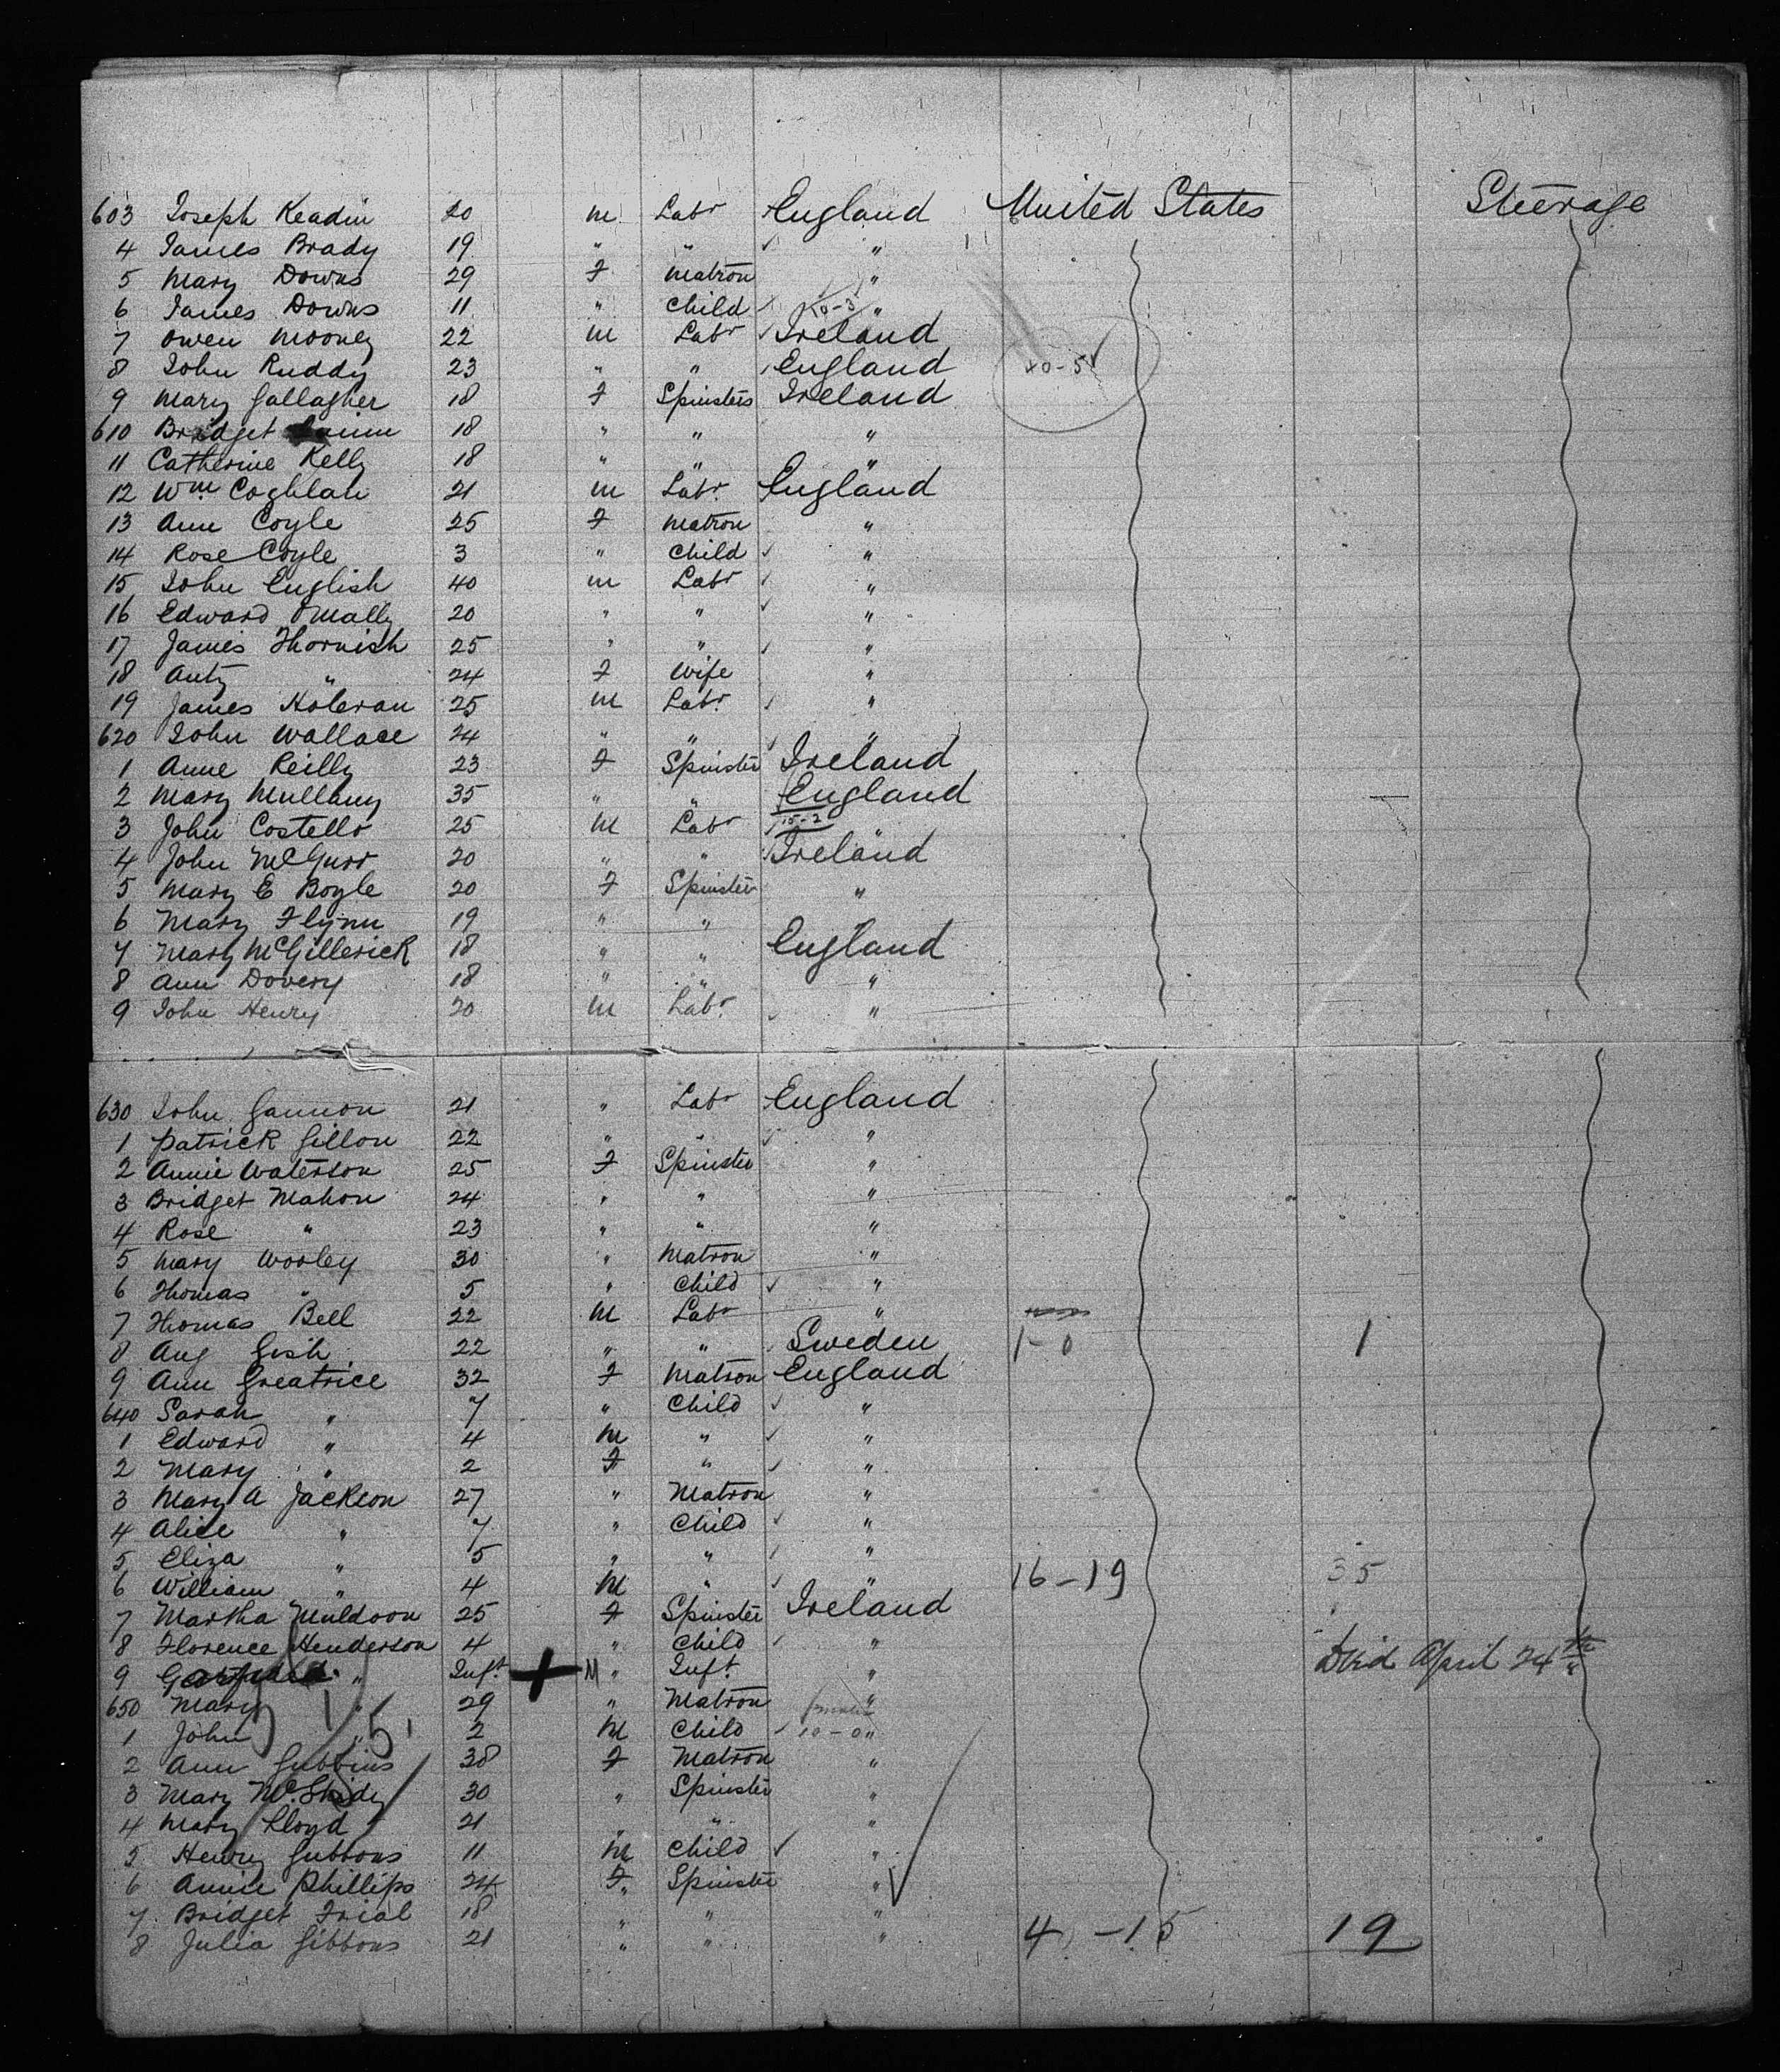 603 Joseph Keadin 20 m Labr England United States Steerage
4 James Brady 19 " " "
5 Mary Downs 29 F Matron "
6 James Downs 11 " Child "
7 Owen Mooney 22 m Labr Ireland
8 John Ruddy 23 " " England
9 Mary Gallagher 18 F Spinsters Ireland
610 Bridget 18 " " "
11 Catherine Kelly 18 " " "
12 Wm Coghlan 21 m Labr England
13 Ann Coyle 25 F Matron "
14 Rose Coyle 3 " Child "
15 John English 40 m Labr "
16 Edward OMally 20 " " "
17 James Thornish 25 " " "
18 Anty " 24 F Wife "
19 James Holeran 25 m Labr "
620 John Wallace 24 " " "
1 Anne Reilly 23 F Spinster Ireland
2 Mary Mullany 35 " " England
15-2
3 John Costello 25 M Labr "
4 John McGurr 20 " " Ireland
5 Mary E Boyle 20 F Spinster "
6 Mary Flynn 19 " "
7 Mary McGillerick 18 " " England
8 Ann Dovery 18 " " "
9 John Henry 20 M Labr "
630 John Gannon 21 " Labr England
1 Patrick Gillon 22 " " "
2 Annie Waterson 25 F Spinster "
3 Bridget Mahon 24 " " "
4 Rose " 23 " " "
5 Mary Worley 30 " Matron "
6 Thomas " 5 " Child "
7 Thomas Bell 22 M Labr "
8 Aug Gish 22 " " Sweden 1-0 1
9 Ann Greatrice 32 F Matron England
640 Sarah " 7 " Child "
1 Edward " 4 M " "
2 Mary " 2 F " "
3 Mary A Jackson 27 " Matron "
4 Alice " 7 " Child "
5 Eliza " 5 " " "
6 William " 4 M " " 16-19 35
7 Martha Muldoon 25 F Spinster Ireland
8 Florence Henderson 4 " Child "
9 " Inft M " Inft " Died April 24th
650 Mary " 29 " Matron "
1 John " 2 M Child 10-0 "
2 Ann Gubbins 38 F Matron "
3 Mary 30 " Spinster "
4 Mary Lloyd 21 " " "
5 Henry Gubbons 11 M Child "
6 Annie Phillips 24 F " Spinster "
7 Bridget Frial 18 " " "
8 Julia Gibbons 21 " " " 4-15 19